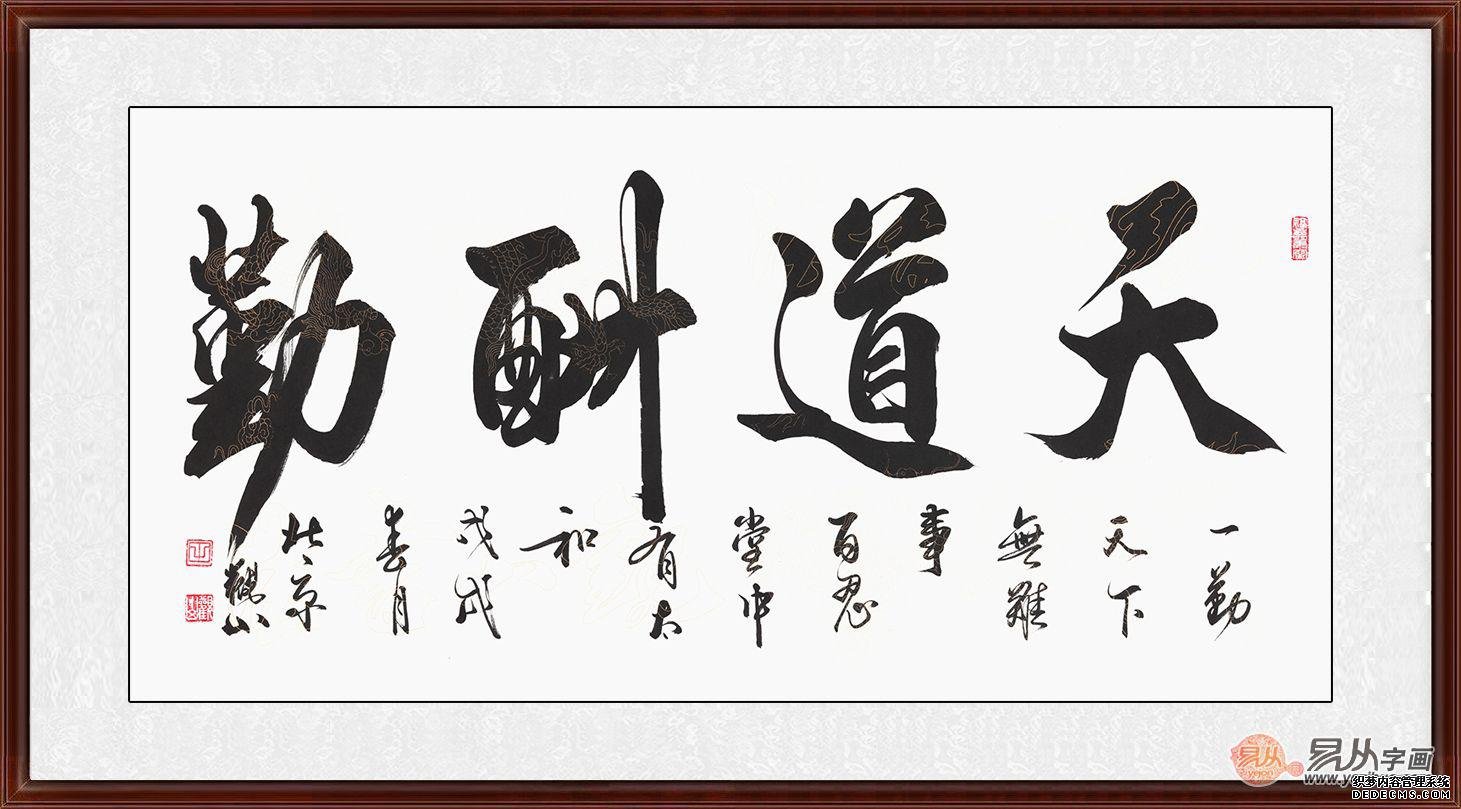 天道酬勤
一勤
天下
無難
事
百忍
堂中
有太
和
戊戌
春月
北京
觀山
易从
易从字画
织梦内容管理系统
DEDECMS.COM